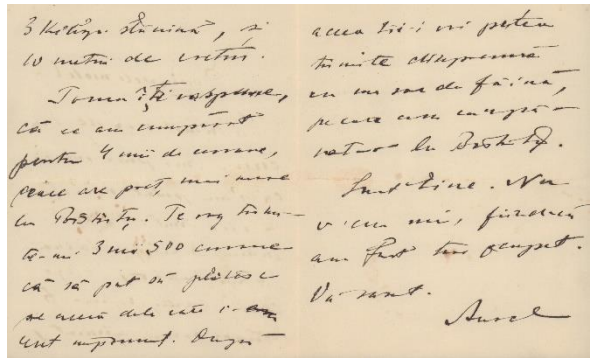 3 Kilogr. slănină, și
10 metri de
Toma îți va spune,
că ce am cumpărat
pentru 4 mii de coroane,
ce are preț, mai mare
la Bistriță. Te rog trimi-
te-mi 3 mii 500 coroane
că să pot să plătesc
pe aceia dela care i-am
luat împrumut. După
aceea îi-i vei putea
trimite dimpreună
cu un sac de făină,
pe care am cumpă-
rat-o la Bistriță.
Sunt bine. Nu
v'am, fiindcă
am fost tare ocupat.
Vă sărut.
Aurel